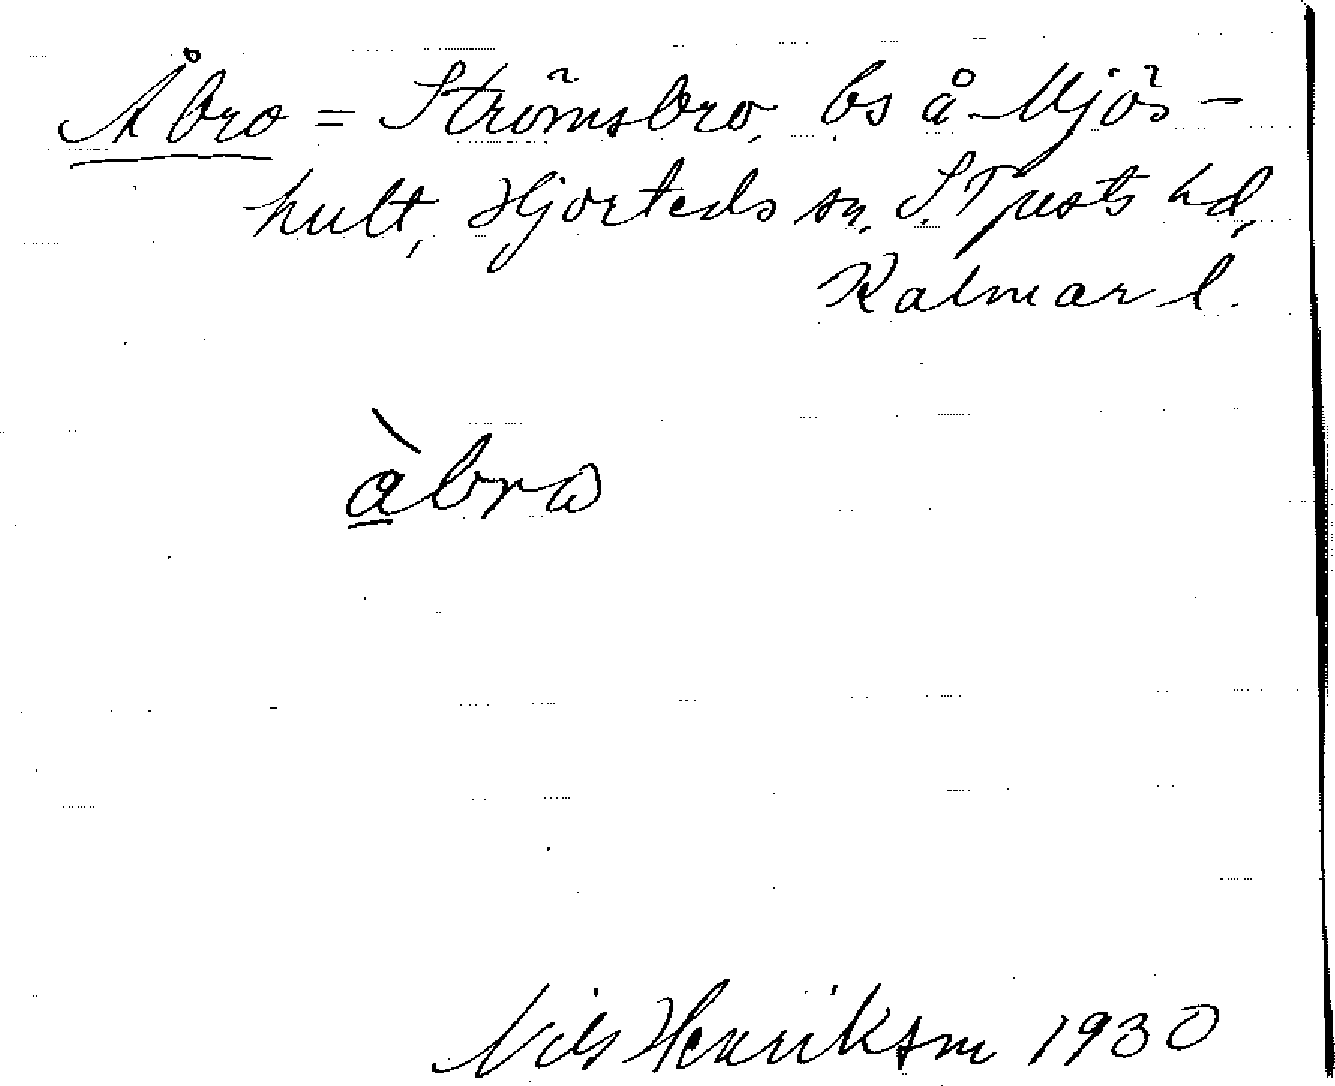 Åbro = Strömsbro, bs å Mjös-
hult, Hjorteds sn, S. Tjusts hd,
Kalmar l.
àbro
Nils Henrikson 1930